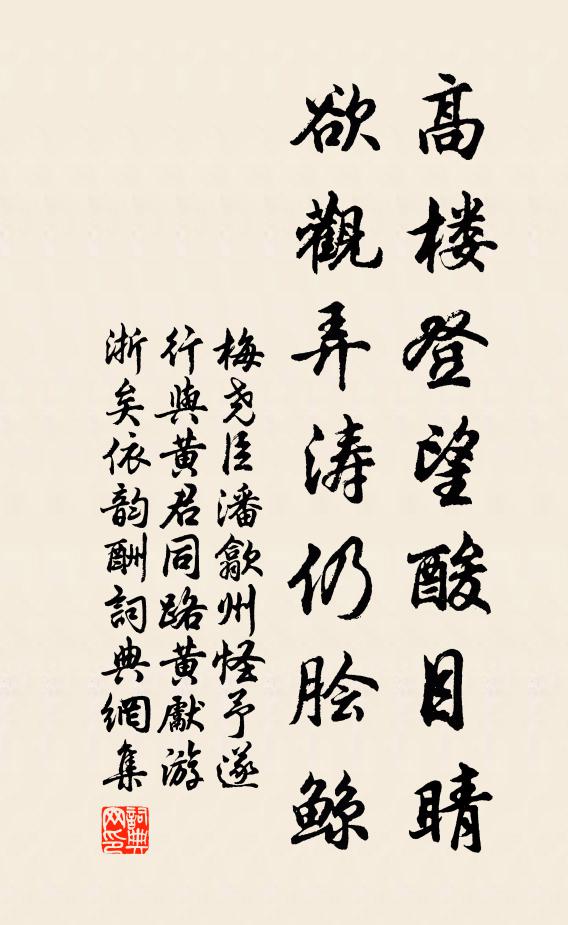 高楼登望酸目睛
欲觀弄涛仍脍鲸
梅尧臣潘歙州怪予遂
行與黄君同路黄獻游
浙矣依韵酬詞典網集
詞典网印